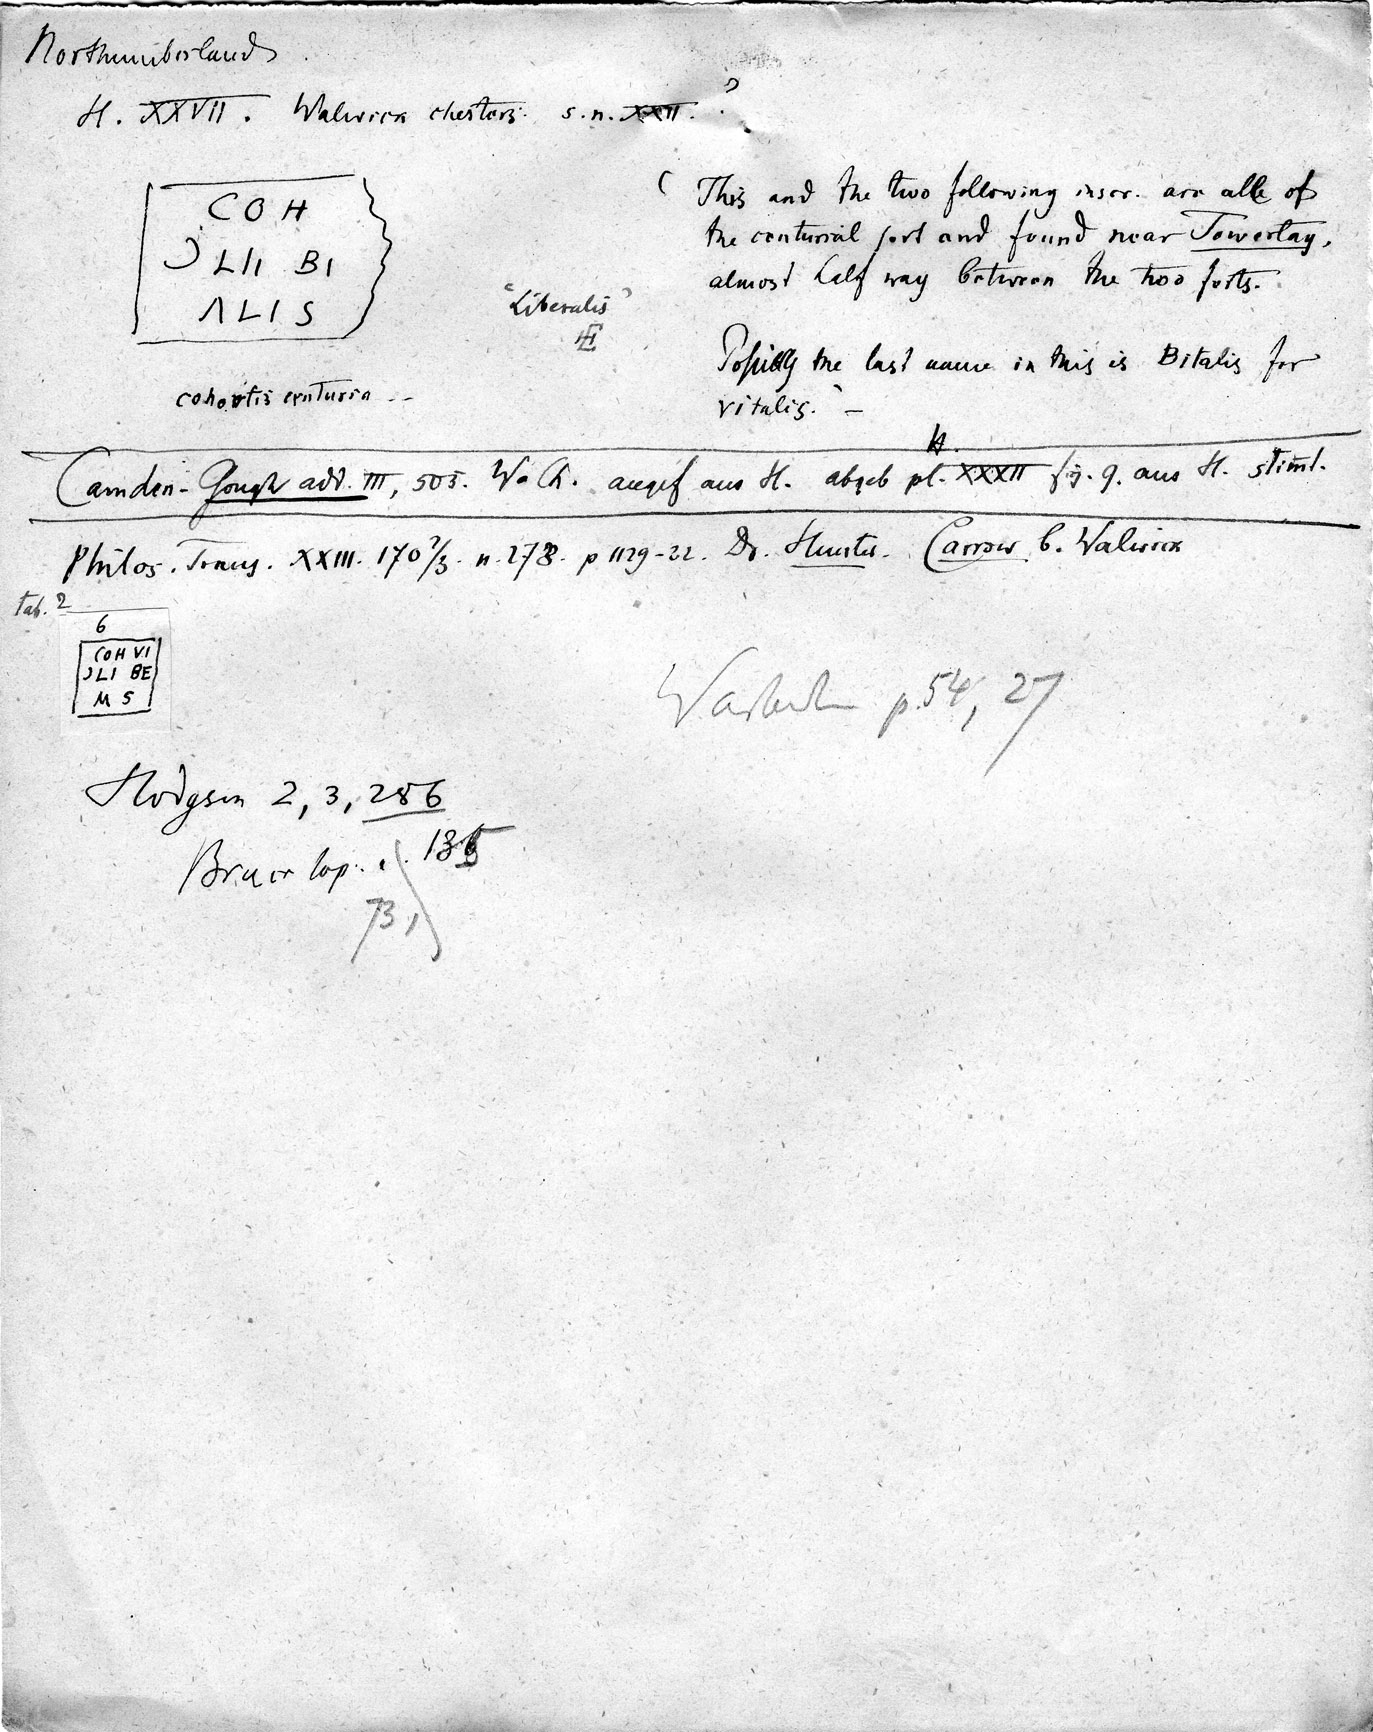 Northumberland
H. XXVII. Walwick chesters. s.n. XXII. ?
COH
Ɔ LII BI
ΛLIS
cohortis centuria --
"Liberalis"
( This and the two following inscr. are alle of
the centurial sort and found near Towertay,
almost half way between the two forts.
Possibly the last name in this is Bitalis for
vitalis. —
H.
Camden-Gough add. III, 503. W. Ch. angef aus H. abgeb pl. XXXII fig. 9. aus H. stimt.
Philos. Trans. XXIII. 170 2/3. n. 278. p 1129-22. Dr. Hunter. Carraw b. Walwick
tab. 2
6
COH VI
Ɔ LI BE
M S
p. 54, 27
Hodgson 2, 3, 286
Bruce lap. . .
73,